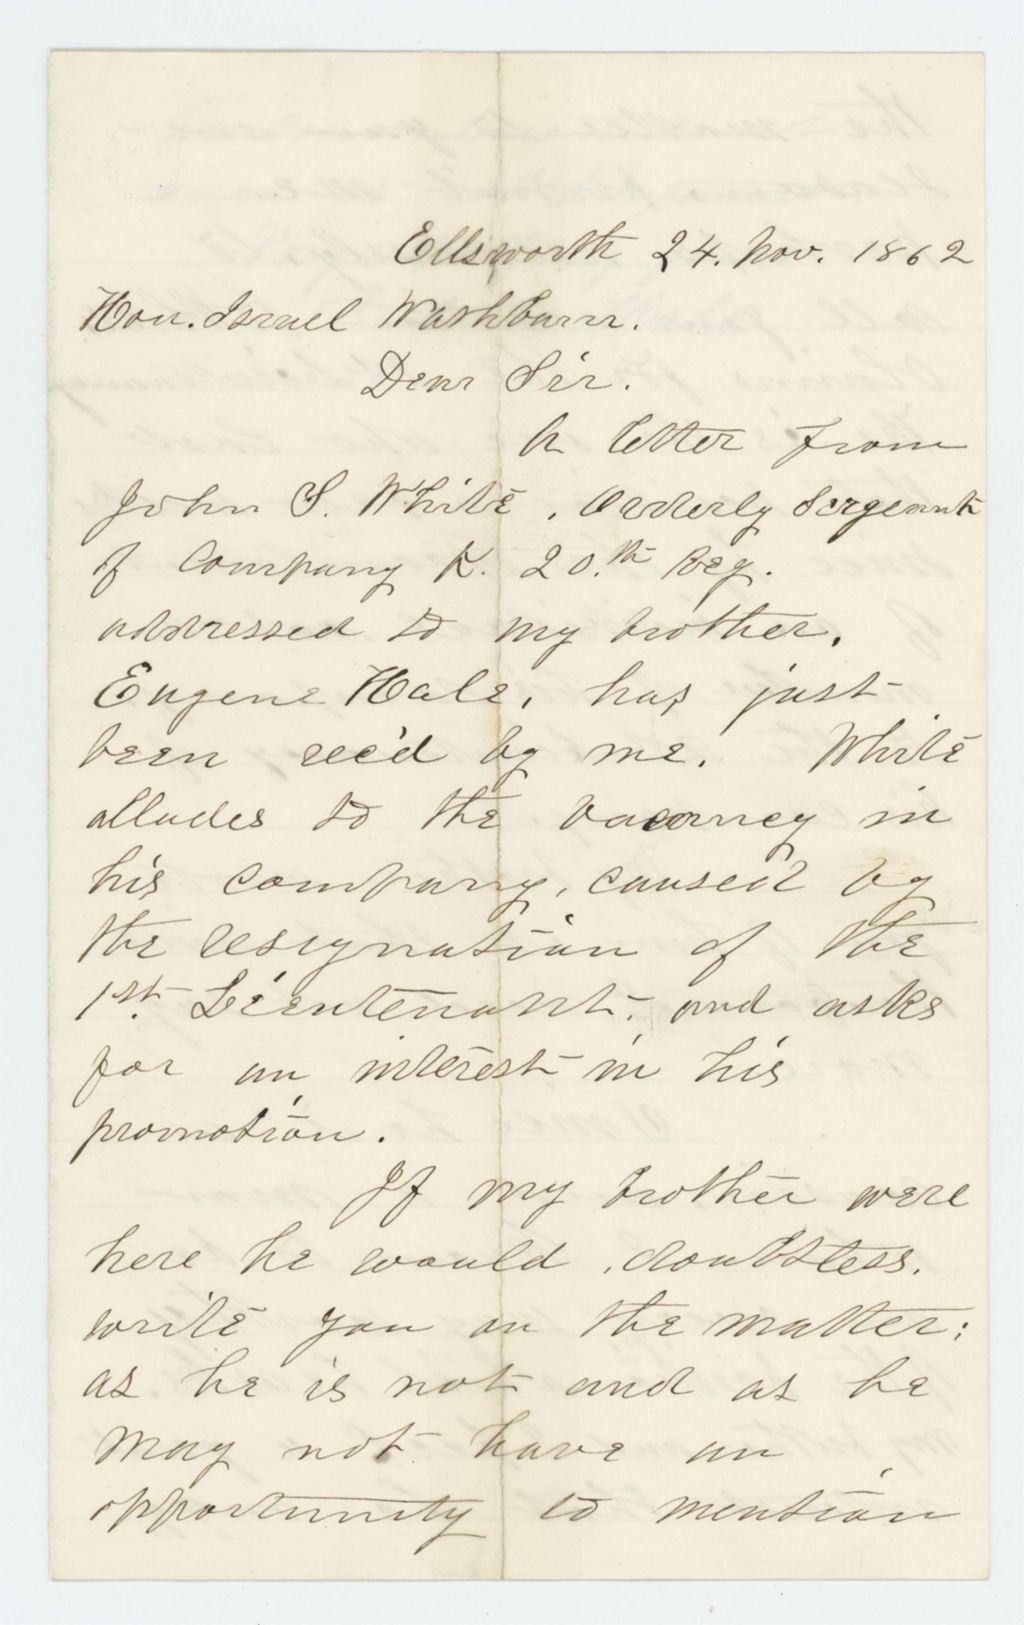 Ellsworth 24. Nov. 1862
Hon. Israel Washburn.
Dear Sir.
A letter from
John S. White, Orderly Sergeant
of Company K. 20.th Reg.
addressed to my brother,
Eugene Hale, has just
been rec'd by me. White
alludes to the vacancy in
his company, caused by
the resignation of the
1st. Lieutenant, and asks
for an interest in his
promotion.
If my brother were
here he would, doubtless,
write you on the matter:
as he is not and as he
may not have an
opportunity to mention